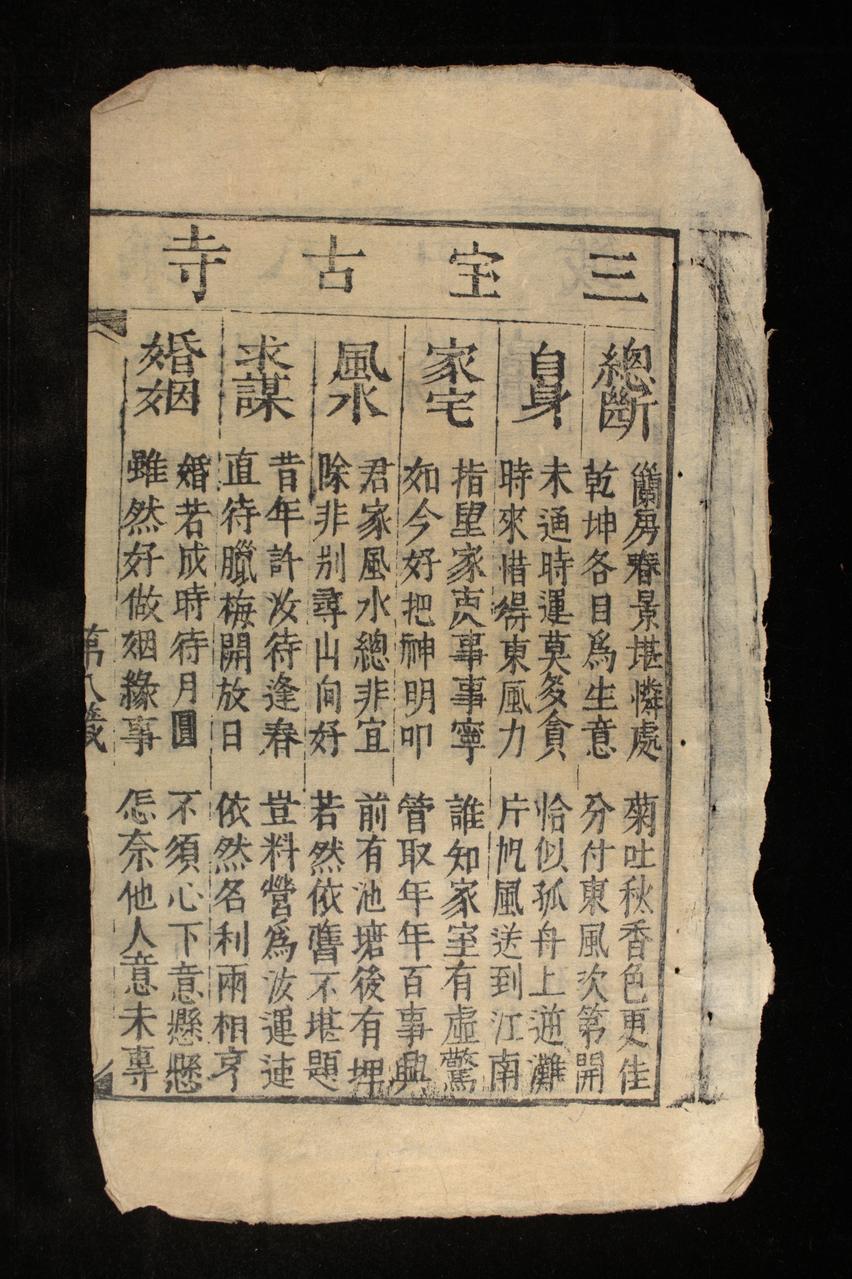 三宝古寺
總斷
蘭房春景堪憐處 菊吐秋香色更佳
乾坤各目爲生意 分付東風次第開
自身
未通時運莫多貪 恰似孤舟上逆灘
時來惜得東風力 片帆風送到江南
家宅
指望家衷事事寧 誰知家室有虛驚
如今好把神明叩 管取年年百事興
風水
君家風水總非宜 前有池塘後有埋
除非别尋山向好 若然依舊不堪題
求謀
昔年許汝待逢春 豈料營爲汝運迍
直待臘梅開放日 依然名利兩相亨
婚姻
婚若成時待月圓 不須心下意懸懸
雖然好做姻緣事 怎奈他人意未專
第八籤